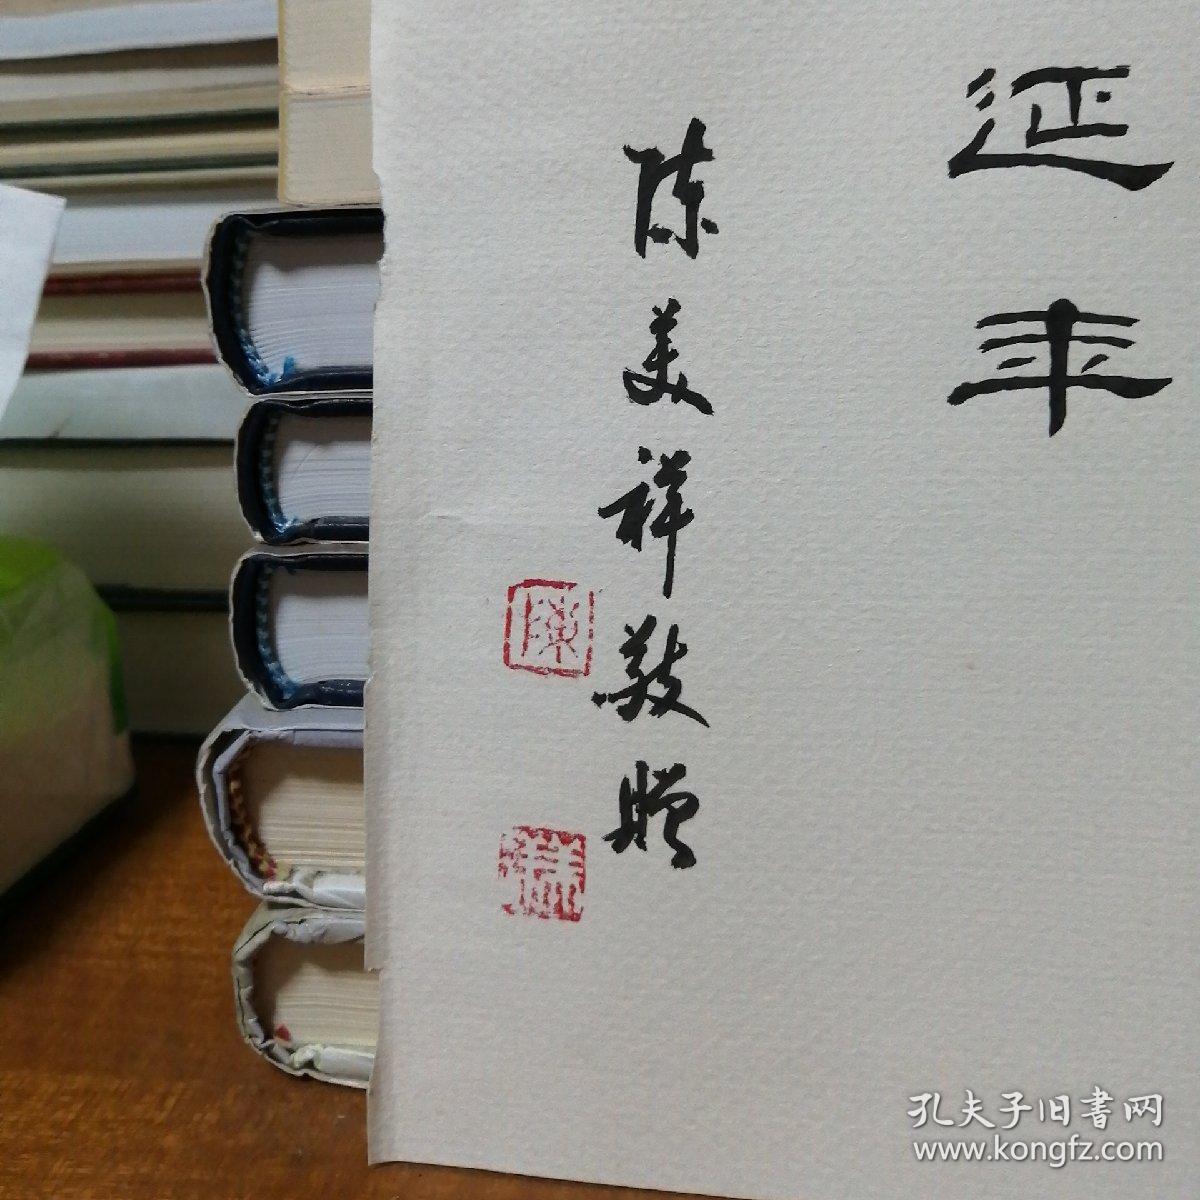 延年
陈美祥敬赠
陳
祥
孔夫子旧書网
www.kongfz.com